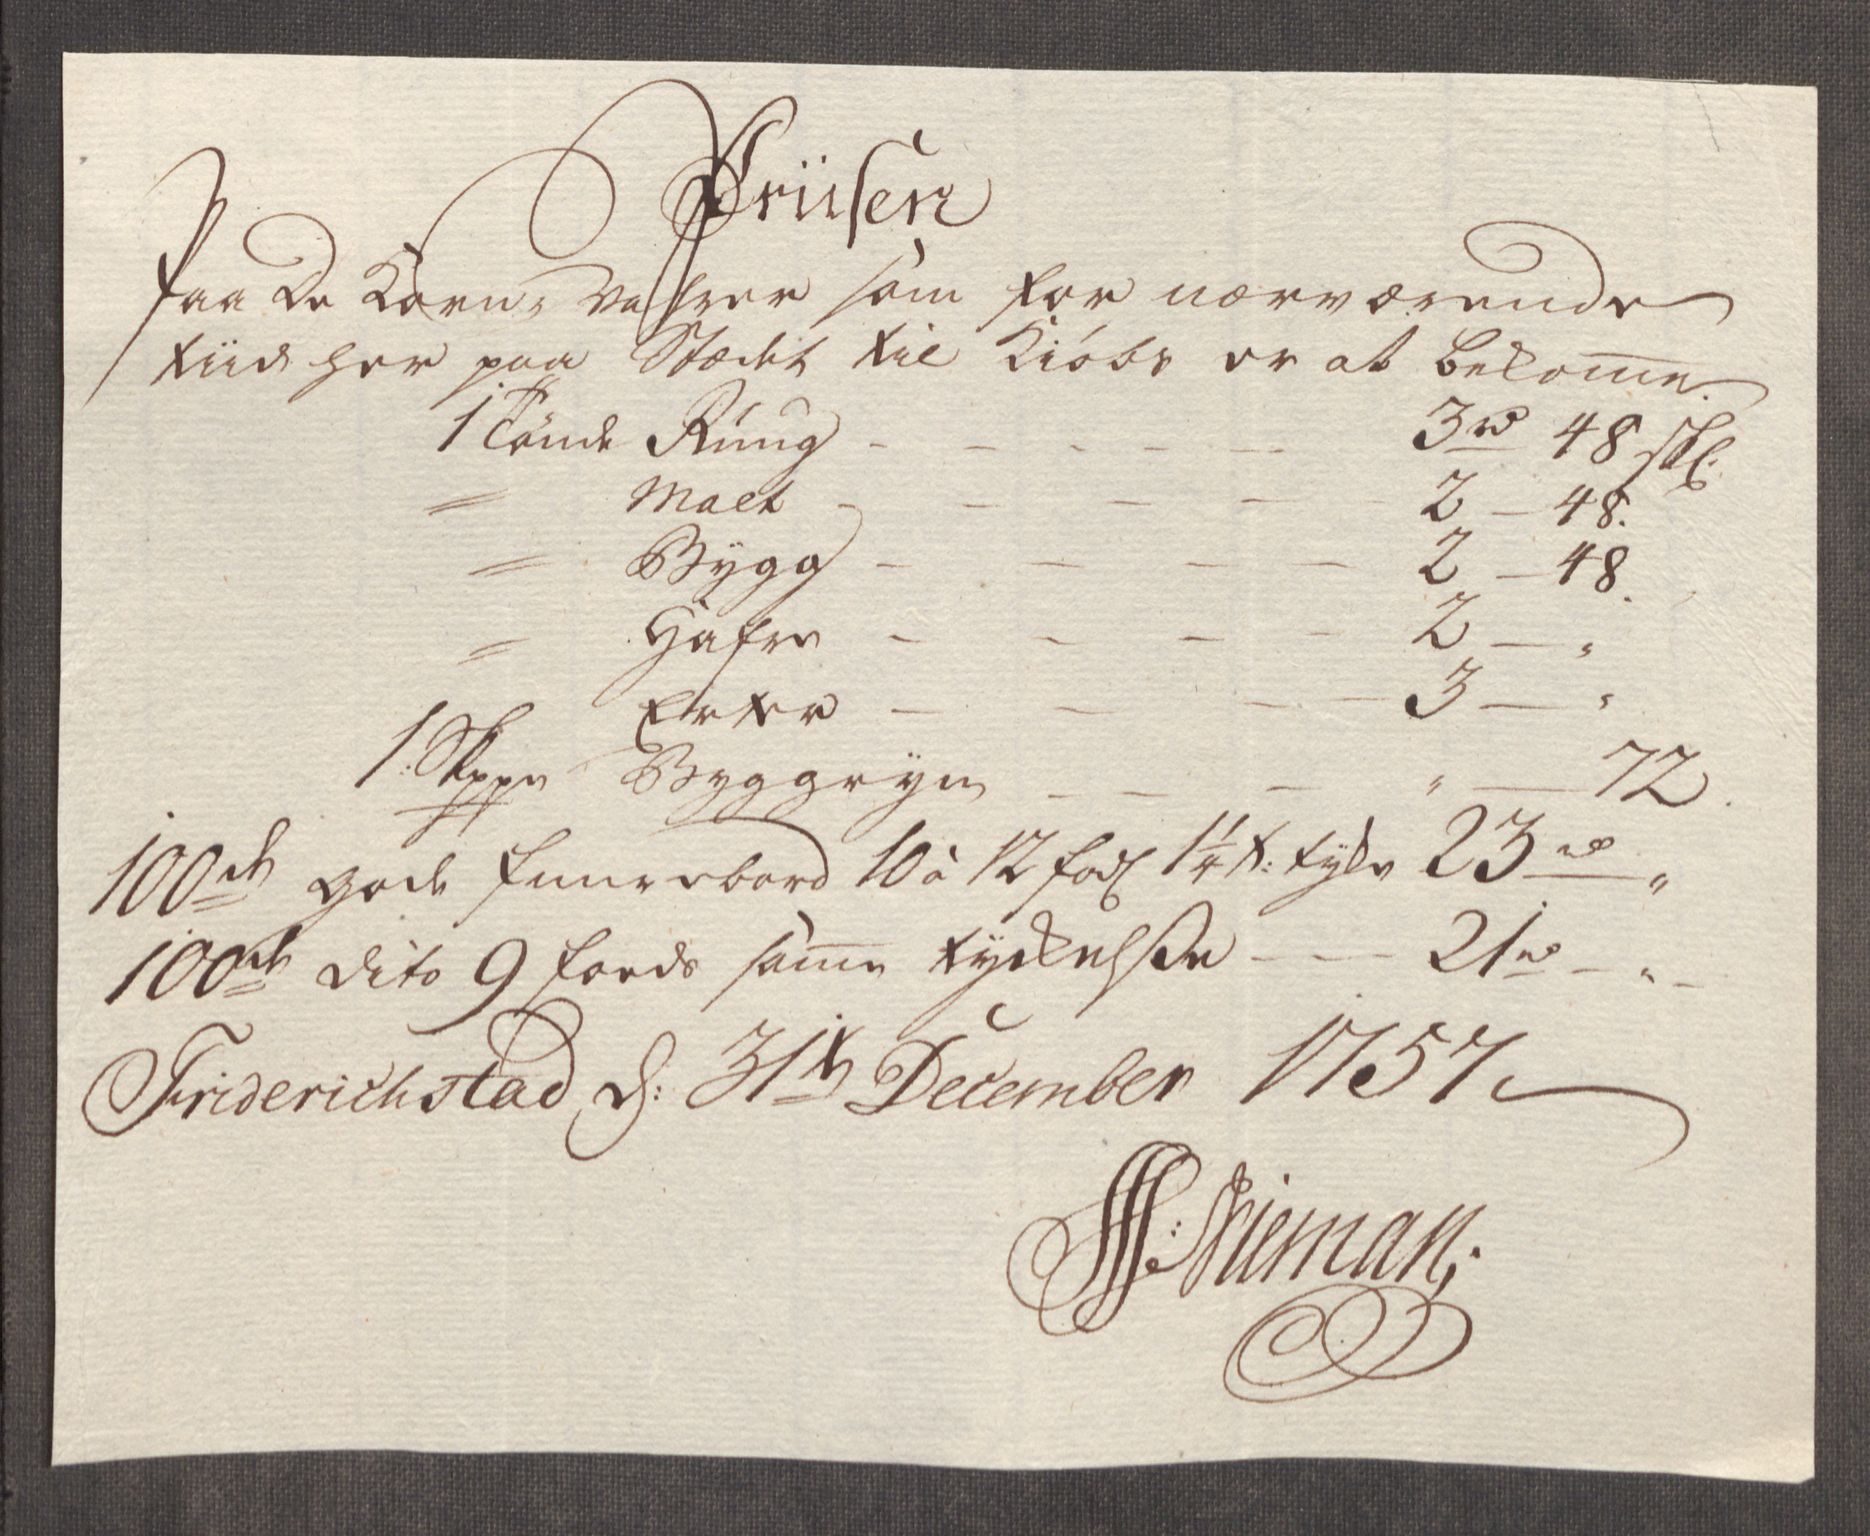 Priisen
Paa de Korn-Vahrer som for nærværende
tiid her paa Stædet til Kiøbs er at bekomme
1 Tønde Ruug - - - - - 3 rd 48 skl:
" Malt - - - - 2 - 48.
" Bygg - - - - 2 - 48.
" Hafre - - - - 2 - "
Erter - - - - 3 - "
1: Skppe Byggryn - - - " - 72.
100de gode furrebord 10 à 12 fod 1 1/4 t: tyke 23 rd "
100de dito 9 foeds samme tyckelse - - 21 rd - " -
Friderichstad d: 31te December 1757
Nieman;